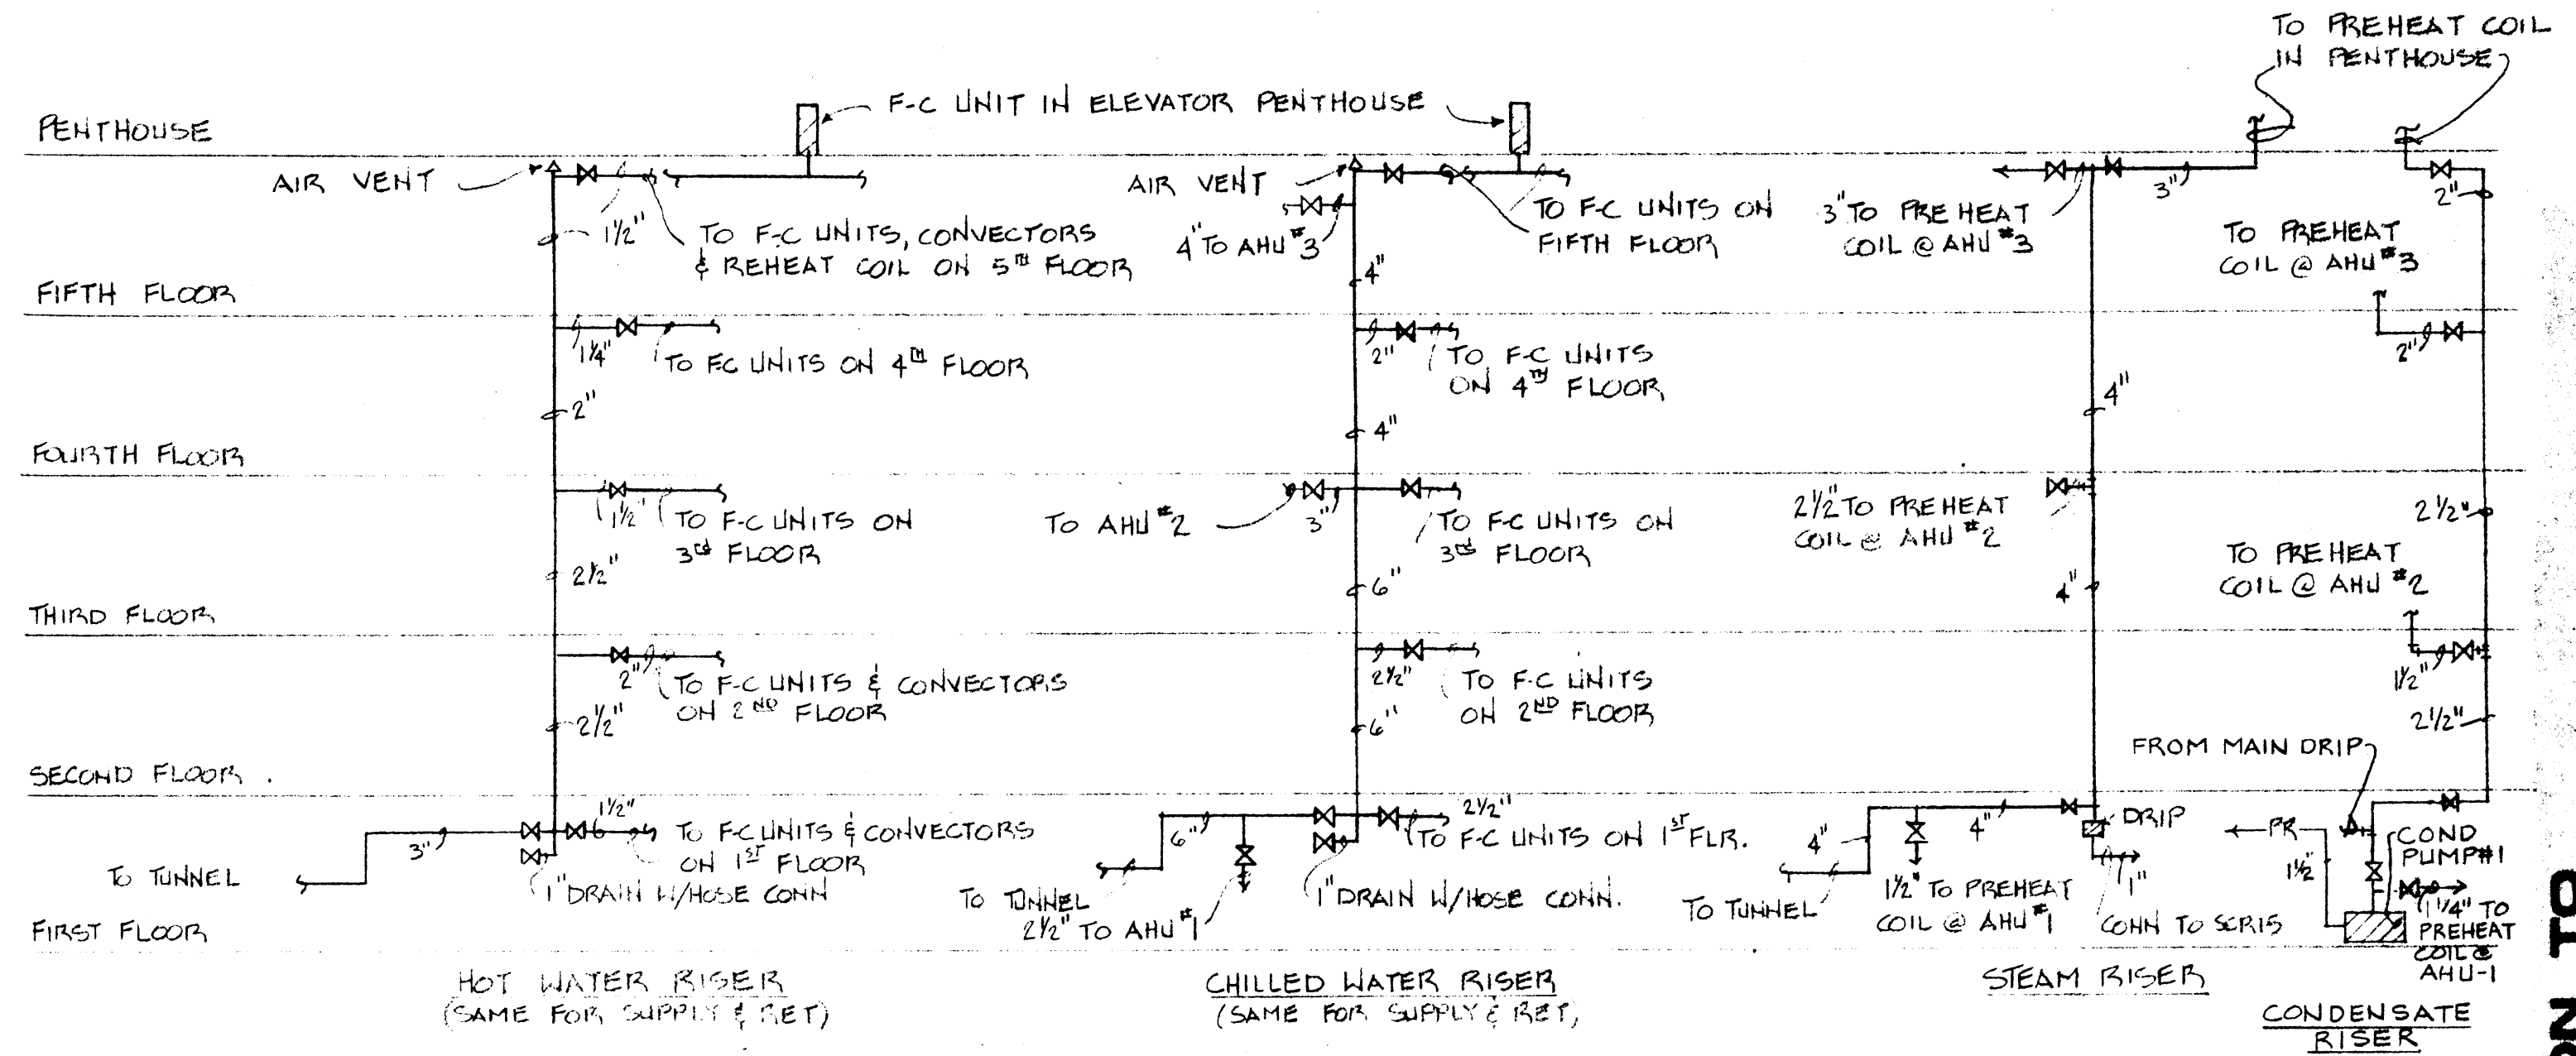 TO PREHEAT COIL
IN PENTHOUSE
PENTHOUSE
F-C UNIT IN ELEVATOR PENTHOUSE
AIR VENT
1½"
TO F-C UNITS, CONVECTORS
& REHEAT COIL ON 5TH FLOOR
AIR VENT
4" TO AHU #3
4"
TO F-C UNITS ON
FIFTH FLOOR
3" TO PREHEAT
COIL @ AHU #3
3"
2"
TO PREHEAT
COIL @ AHU #3
FIFTH FLOOR
1¼"
TO FC UNITS ON 4TH FLOOR
2"
2"
TO F-C UNITS
ON 4TH FLOOR
4"
4"
2"
FOURTH FLOOR
1½"
TO F-C UNITS ON
3RD FLOOR
2½"
TO AHU #2
3"
TO F-C UNITS ON
3RD FLOOR
6"
2½" TO PREHEAT
COIL @ AHU #2
4"
2½"
TO PREHEAT
COIL @ AHU #2
THIRD FLOOR
2"
TO F-C UNITS & CONVECTORS
ON 2ND FLOOR
2½"
2½"
TO F-C UNITS
ON 2ND FLOOR
6"
1½"
2½"
FROM MAIN DRIP
SECOND FLOOR
1½"
3"
TO F-C UNITS & CONVECTORS
ON 1ST FLOOR
TO TUNNEL
1" DRAIN W/HOSE CONN
6"
2½"
TO F-C UNITS ON 1ST FLR.
TO TUNNEL
2½" TO AHU #1
1" DRAIN W/HOSE CONN.
4"
4"
DRIP
TO TUNNEL
1½" TO PREHEAT
COIL @ AHU #1
1"
CONN TO SCR15
PR
1½
COND
PUMP #1
1¼" TO
PREHEAT
COIL @
AHU-1
FIRST FLOOR
HOT WATER RISER
(SAME FOR SUPPLY & RET)
CHILLED WATER RISER
(SAME FOR SUPPLY & RET)
STEAM RISER
CONDENSATE
RISER